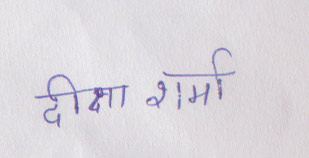 दीक्षा शर्मा